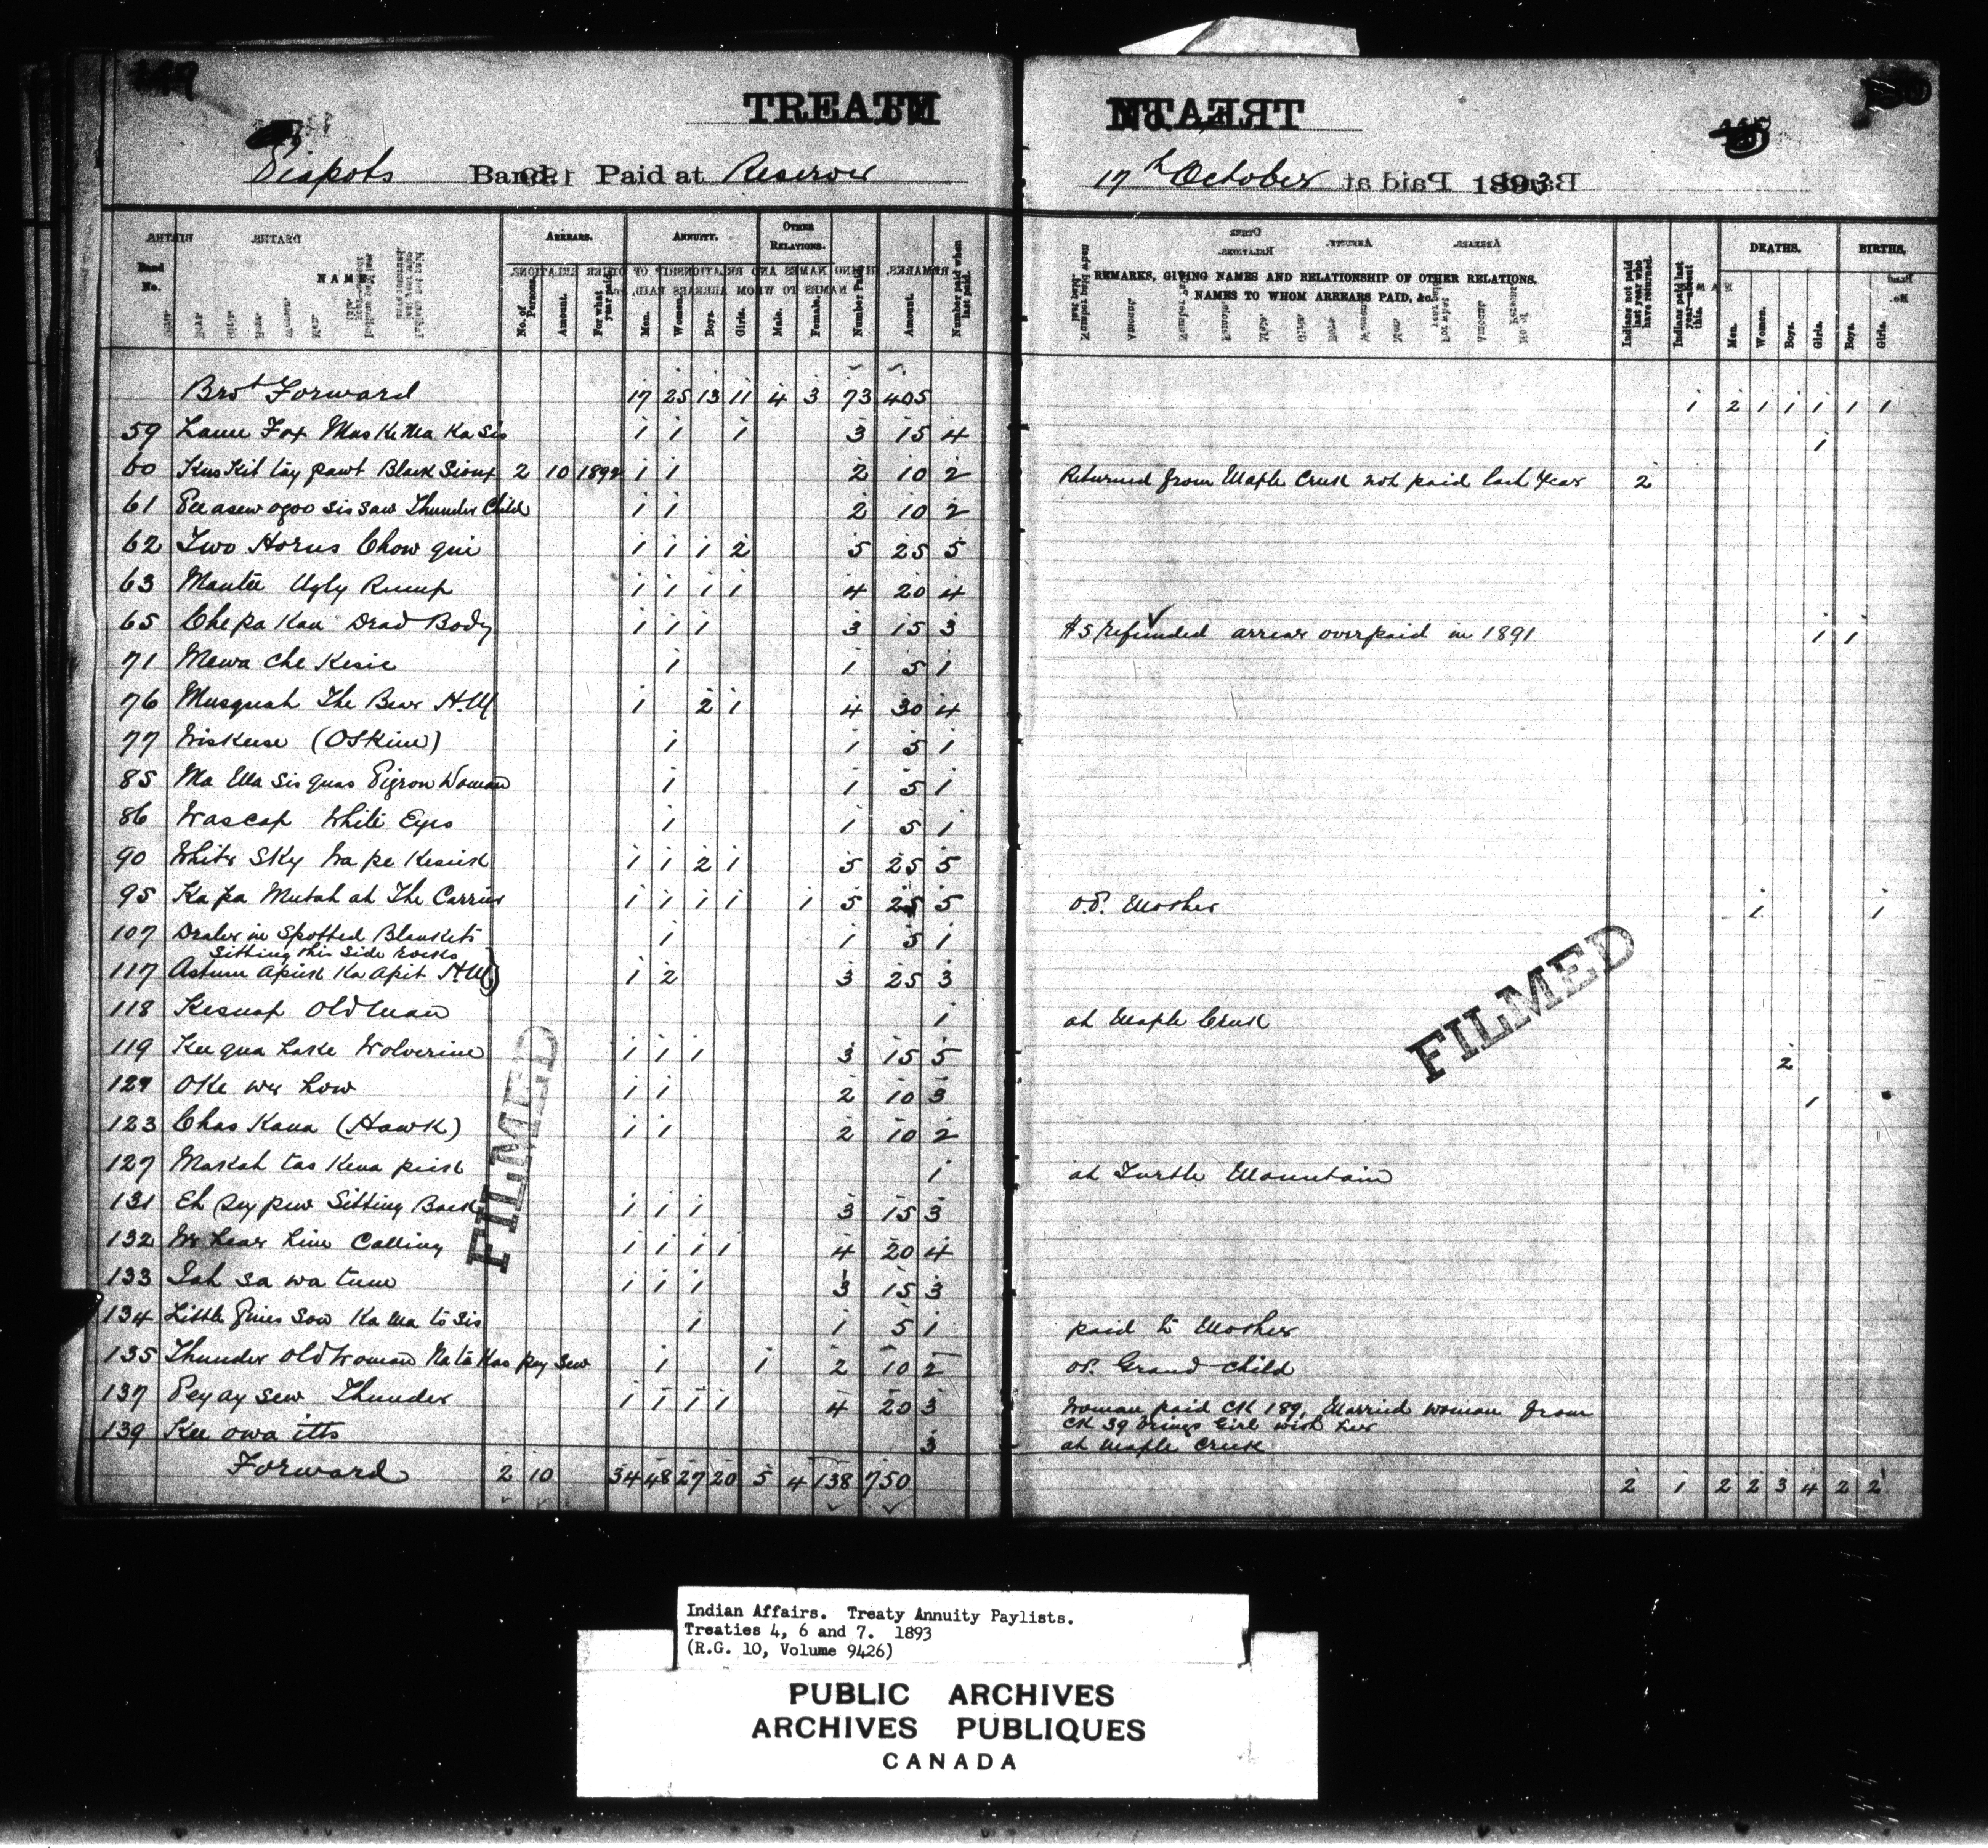 TREATY
Piapots Band. Paid at Reserve
17th October 1893
Band No.
NAMES.
ARREARS.
No. of Persons.
Amount.
For what year paid.
ANNUITY.
Men.
Women.
Boys.
Girls.
OTHER RELATIONS.
Male.
Female.
Number Paid.
Amount.
Number paid when last paid.
REMARKS, GIVING NAMES AND RELATIONSHIP OF OTHER RELATIONS.
NAMES TO WHOM ARREARS PAID, &c.
Indians not paid last year who have returned.
Indians paid last year absent this.
DEATHS.
Men.
Women.
Boys.
Girls.
BIRTHS.
Boys.
Girls.
Brot Forward 17 25 13 11 4 3 73 405 1 2 1 1 1 1 1
59 Lame Fox Mas Ke Ma Ka Sis 1 1 1 3 15 4 1
60 Kus Kit tay pawt Black Sioux 2 10 1892 1 1 2 10 2 Returned from Maple Creek not paid last year 2
61 Pee asew ogoo sis saw Thunder Child 1 1 2 10 2
62 Two Horns Chow gui 1 1 1 2 5 25 5
63 Mantee Ugly Rump 1 1 1 1 4 20 4
65 Chepa Kan Dead Body 1 1 1 3 15 3 $5 refunded arrears overpaid in 1891 1 1
71 Mewa che Kesic 1 1 5 1
76 Musquah The Bear H.M 1 2 1 4 30 4
77 Wiskuse (OsKine) 1 1 5 1
85 Ma Ma sis quas Pigeon Woman 1 1 5 1
86 Wascap White Eyes 1 1 5 1
90 White Sky Wa pe Kesick 1 1 2 1 5 25 5
95 Ka pa Mutah at The Carrier 1 1 1 1 1 5 25 5 O.P. Mother 1 1
107 Dealer in Spotted Blankets 1 1 5 1
Sitting this side rocks
117 Astum Apick Ka Apit H.M) 1 2 3 25 3
118 Kesnap Old Man 1 at Maple Creek
119 Kee qua hake Wolverine 1 1 1 3 15 5 2
121 Oke we how 1 1 2 10 3 1
123 Chas Kana (Hawk) 1 1 2 10 2
127 Maskah tas Kena pick 1 at Turtle Mountain
131 Eh pey pew Sitting Back 1 1 1 3 15 3
132 We hear him Calling 1 1 1 1 4 20 4
133 Jah sa wa tum 1 1 1 3 15 3
134 Little Pines Son Ka Ma to sis 1 1 5 1 paid to Mother
135 Thunder Old Woman Na ta Kas pey sew 1 1 2 10 2 OP. Grand child
137 Pey ay sew Thunder 1 1 1 1 4 20 3 Woman paid CK 189, Married woman from
CK 39 brings Girl with her
139 Kee owa itts 3 at Maple Creek
Forward 2 10 34 48 27 20 5 4 138 750 2 1 2 2 3 4 2 2
FILMED
FILMED
Indian Affairs. Treaty Annuity Paylists.
Treaties 4, 6 and 7. 1893
(R.G. 10, Volume 9426)
PUBLIC ARCHIVES
ARCHIVES PUBLIQUES
CANADA